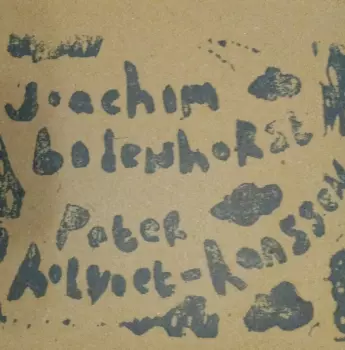 Joachim
badenhorst
Pater
Holvoet-hanssen